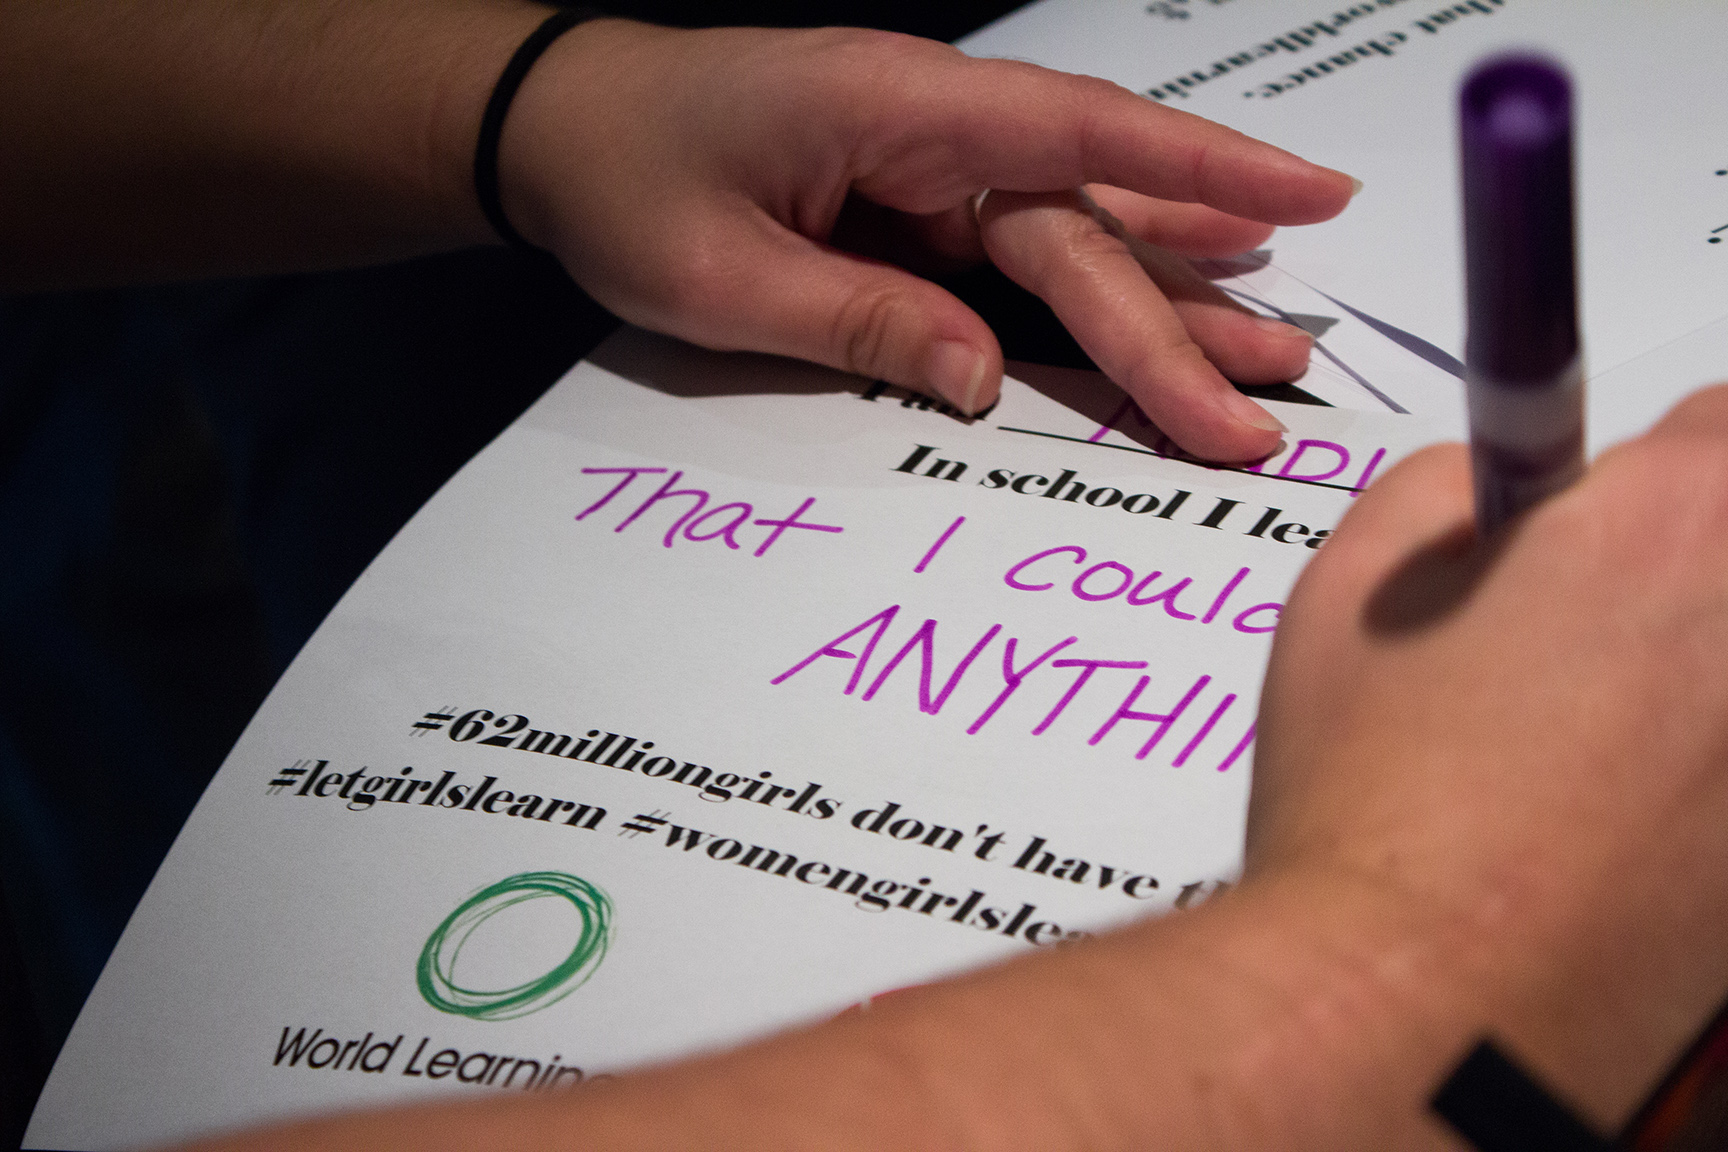 that chance.
In school I
That I could
ANYTHI
#62milliongirls don't have
#letgirlslearn #womengirlslea
World Learning